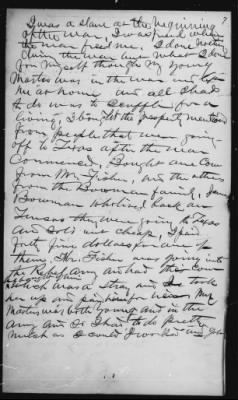 I was a slave at the beginning
of the war, I was freed when
the war freed me. I done nothing
during the war only what I done
for myself through my young
Master was in the war and left
me at home and all I had
to do was to scuffle for a
living, I bought the property mentioned
from people that were going
off to Texas after the war
Commenced, Bought one Cow
from Mr. Fisher, and the others
from the Bowman family, James
Bowman who lived back an
they were going to Texas
and sold out cheap, I paid
forty five dollars for one of
them, Mr. Fisher was going into
the Rebel Army and had this cow
which was a stray and I took
her up and paid him for her. My
Master was both young and in the
army and I had to do pretty
much as I could I worked